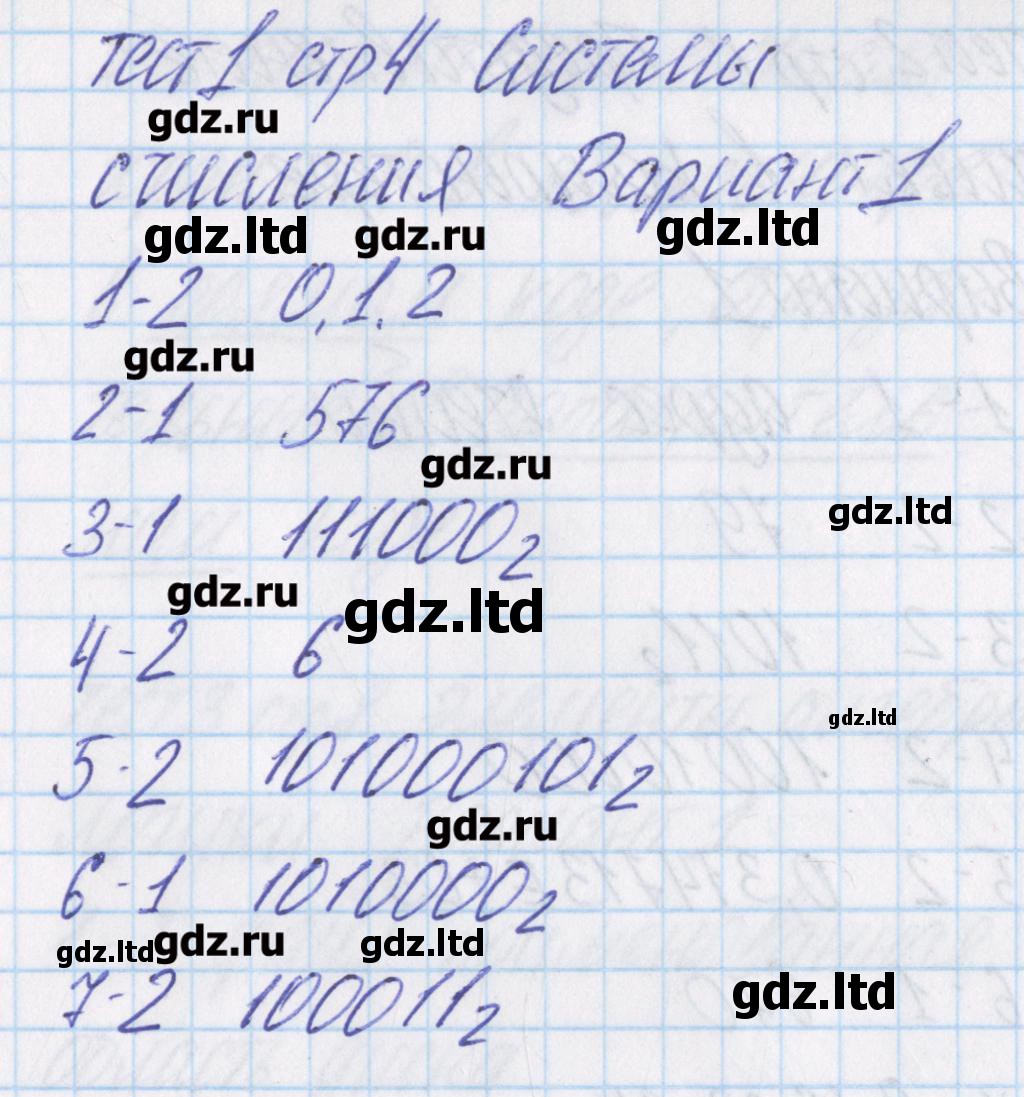 тест 1 стр 4 Системы
gdz.ru
счисления Вариант 1
gdz.ltd gdz.ru gdz.ltd
1-2 0,1,2
gdz.ru
2-1 576
gdz.ru
3-1 111000₂
gdz.ltd
gdz.ru gdz.ltd
4-2 6
gdz.ltd
5-2 101000101₂
gdz.ru
6-1 1010000₂
gdz.ltd gdz.ru gdz.ltd
7-2 100011₂
gdz.ltd